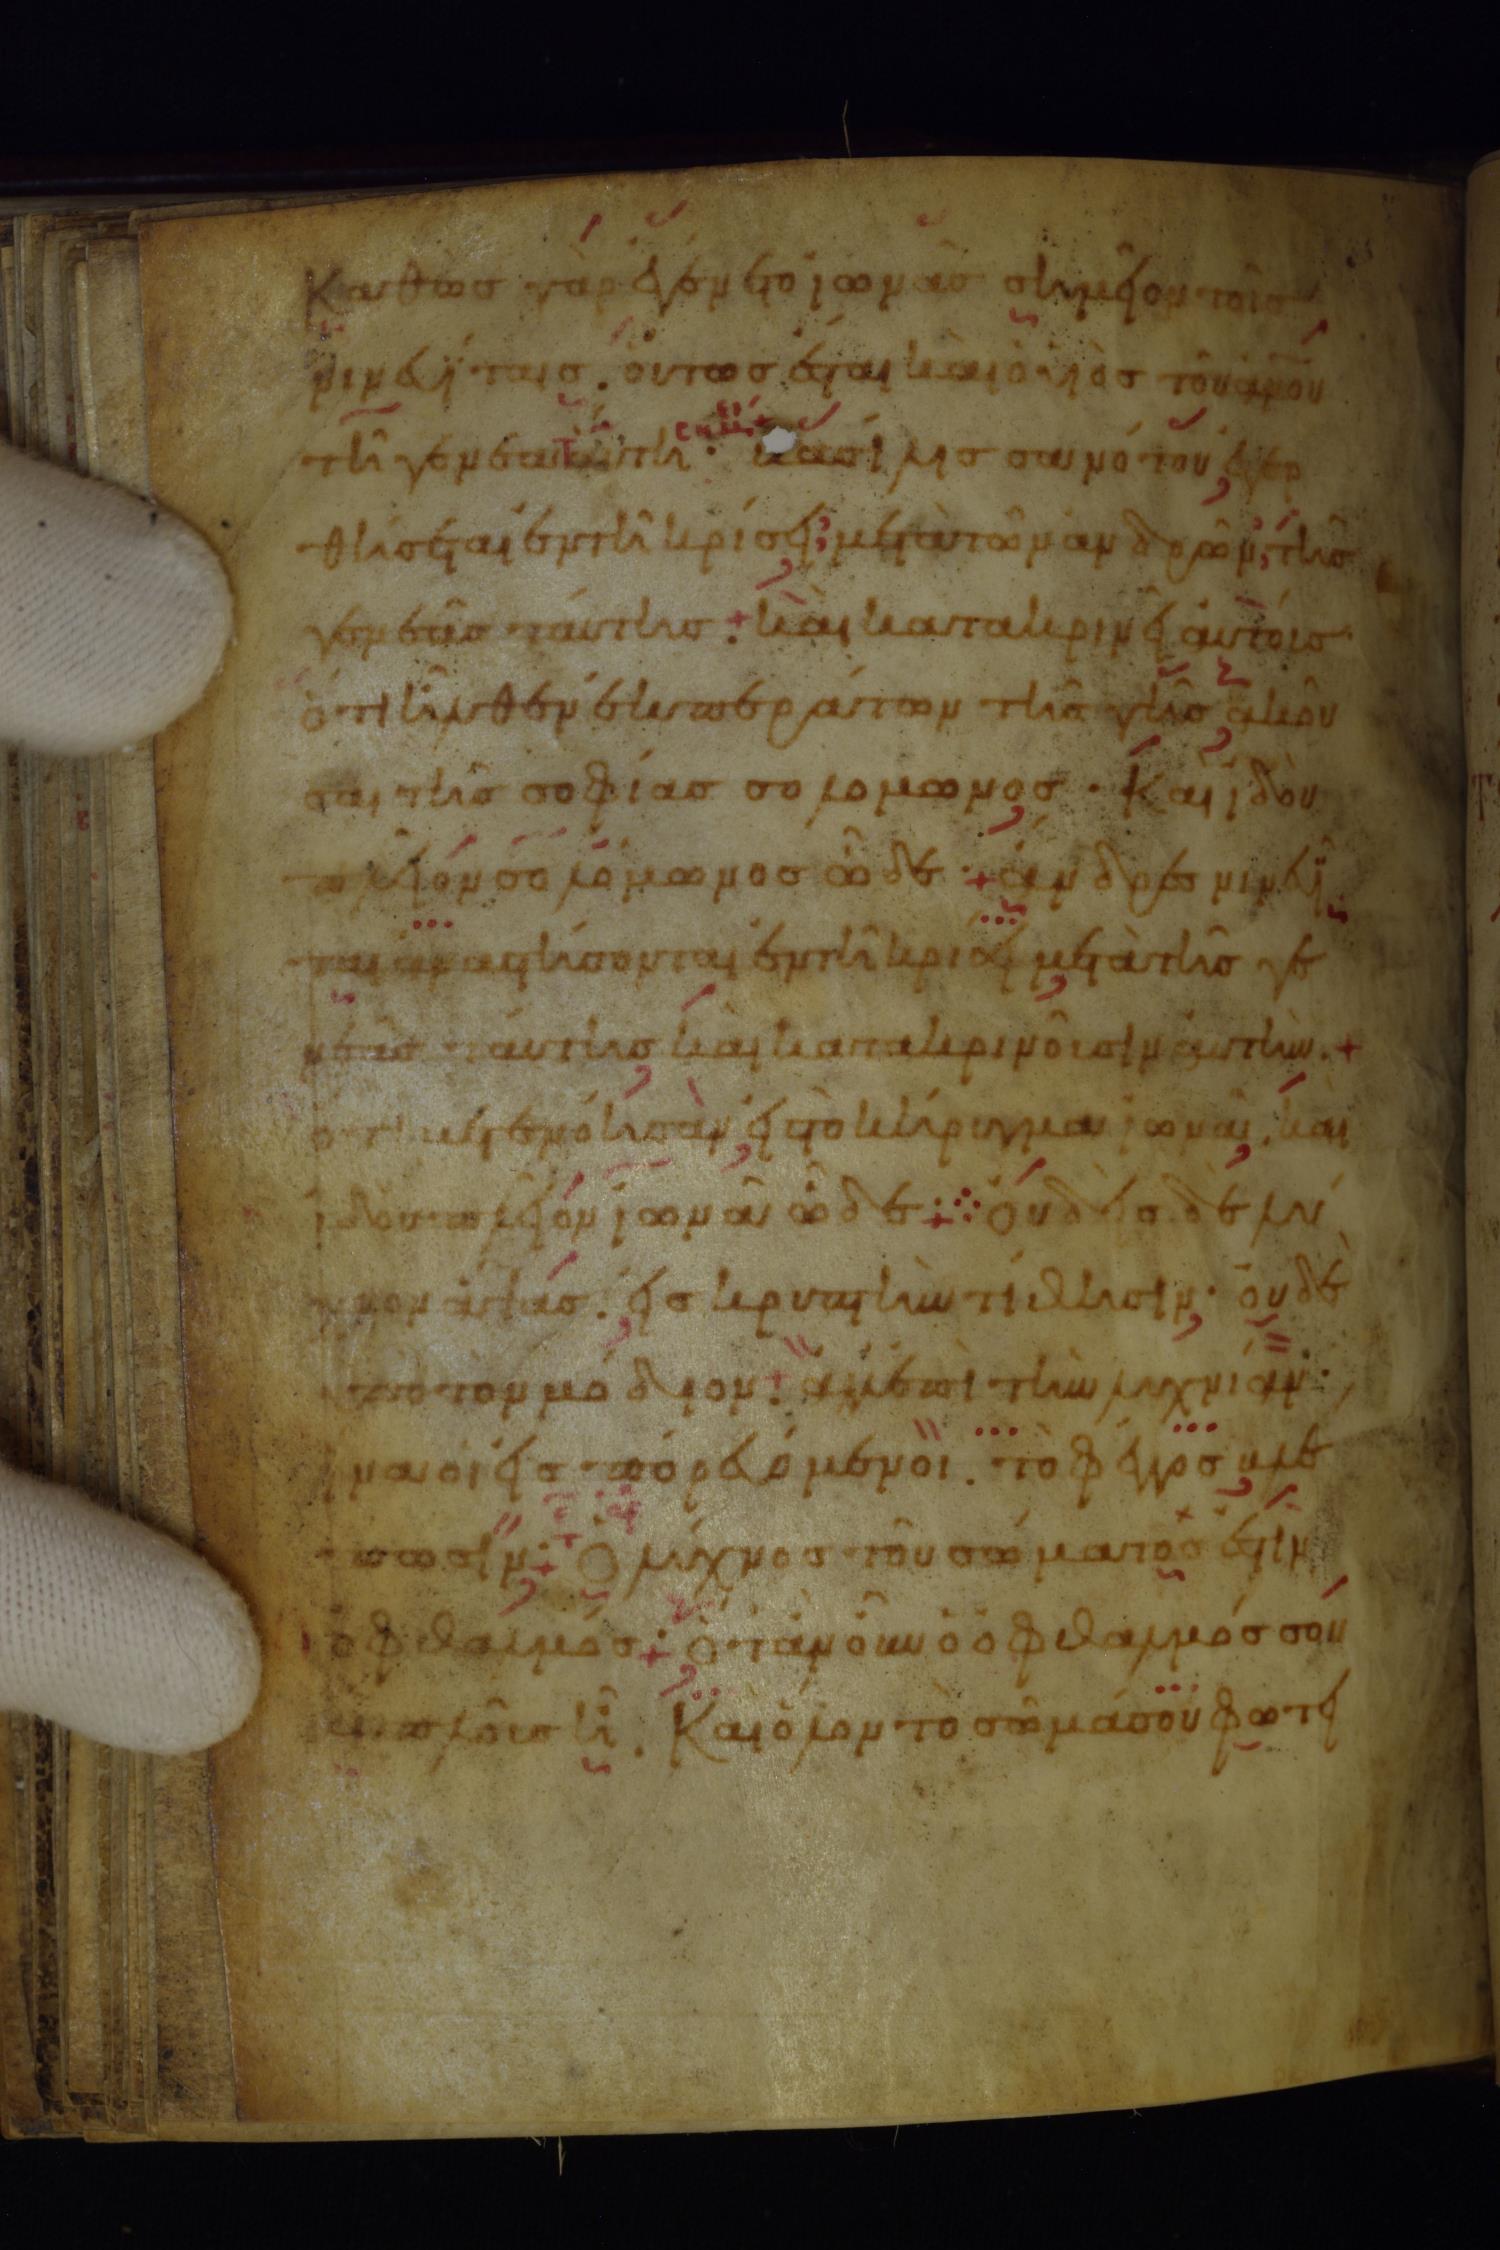 Καθὼς γὰρ ἐγένετο ἰωνᾶς σημεῖον τοῖς
νινευΐταις. οὕτως ἔσται καὶ ὁ υἱὸς τοῦ ἀνου
τῆ γενεᾶ ταύτη· βασίλισσα νότου ἐγερ
θήσεται ἐν τῆ κρίσει μετὰ τῶν ἀνδρῶν τῆς
γενεᾶς ταύτης. καὶ κατακρινεῖ αὐτοῖς
ὅτι ἦλθεν ἐκ περάτων τῆς γῆς ἀκοῦ
σαι τῆς σοφίας σολομῶνος· Καὶ ἰδοὺ
πλεῖον σολομῶνος ὧδε· ἄνδρες νινευΐ
ται ἀναστήσονται ἐν τῆ κρίσει μετὰ τῆς γε
νεᾶς ταύτης καὶ κατακρινοῦσιν αὐτήν.
ὅτι μετενόησαν εἰς τὸ κήρυγμα ἰωνᾶ, καὶ
ἰδοὺ πλεῖον ἰωνᾶ ὧδε· Οὐδεὶς δὲ λύ
χνον ἅψας. εἰς κρυπτὴν τίθησιν· οὐδὲ
ὑπὸ τὸν μόδιον. ἀλλ' ἐπὶ τὴν λυχνίαν·
ἵνα οἱ εἰσπορευόμενοι. τὸ φέγγος βλέ
πωσιν· Ὁ λύχνος τοῦ σώματος ἐστὶν
ὁ ὀφθαλμός· ὅταν οὖν ὁ ὀφθαλμός σου
ἁπλοῦς ἦ. Καὶ ὅλον τὸ σῶμά σου φωτει